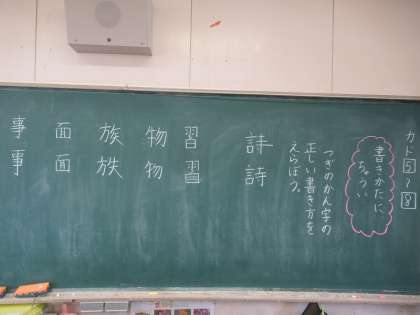 カド5~8
書きかたに
ちゅうい
つぎのかん字の
正しい書き方を
えらぼう。
詩
習 習
物 物
族
面 面
事 事